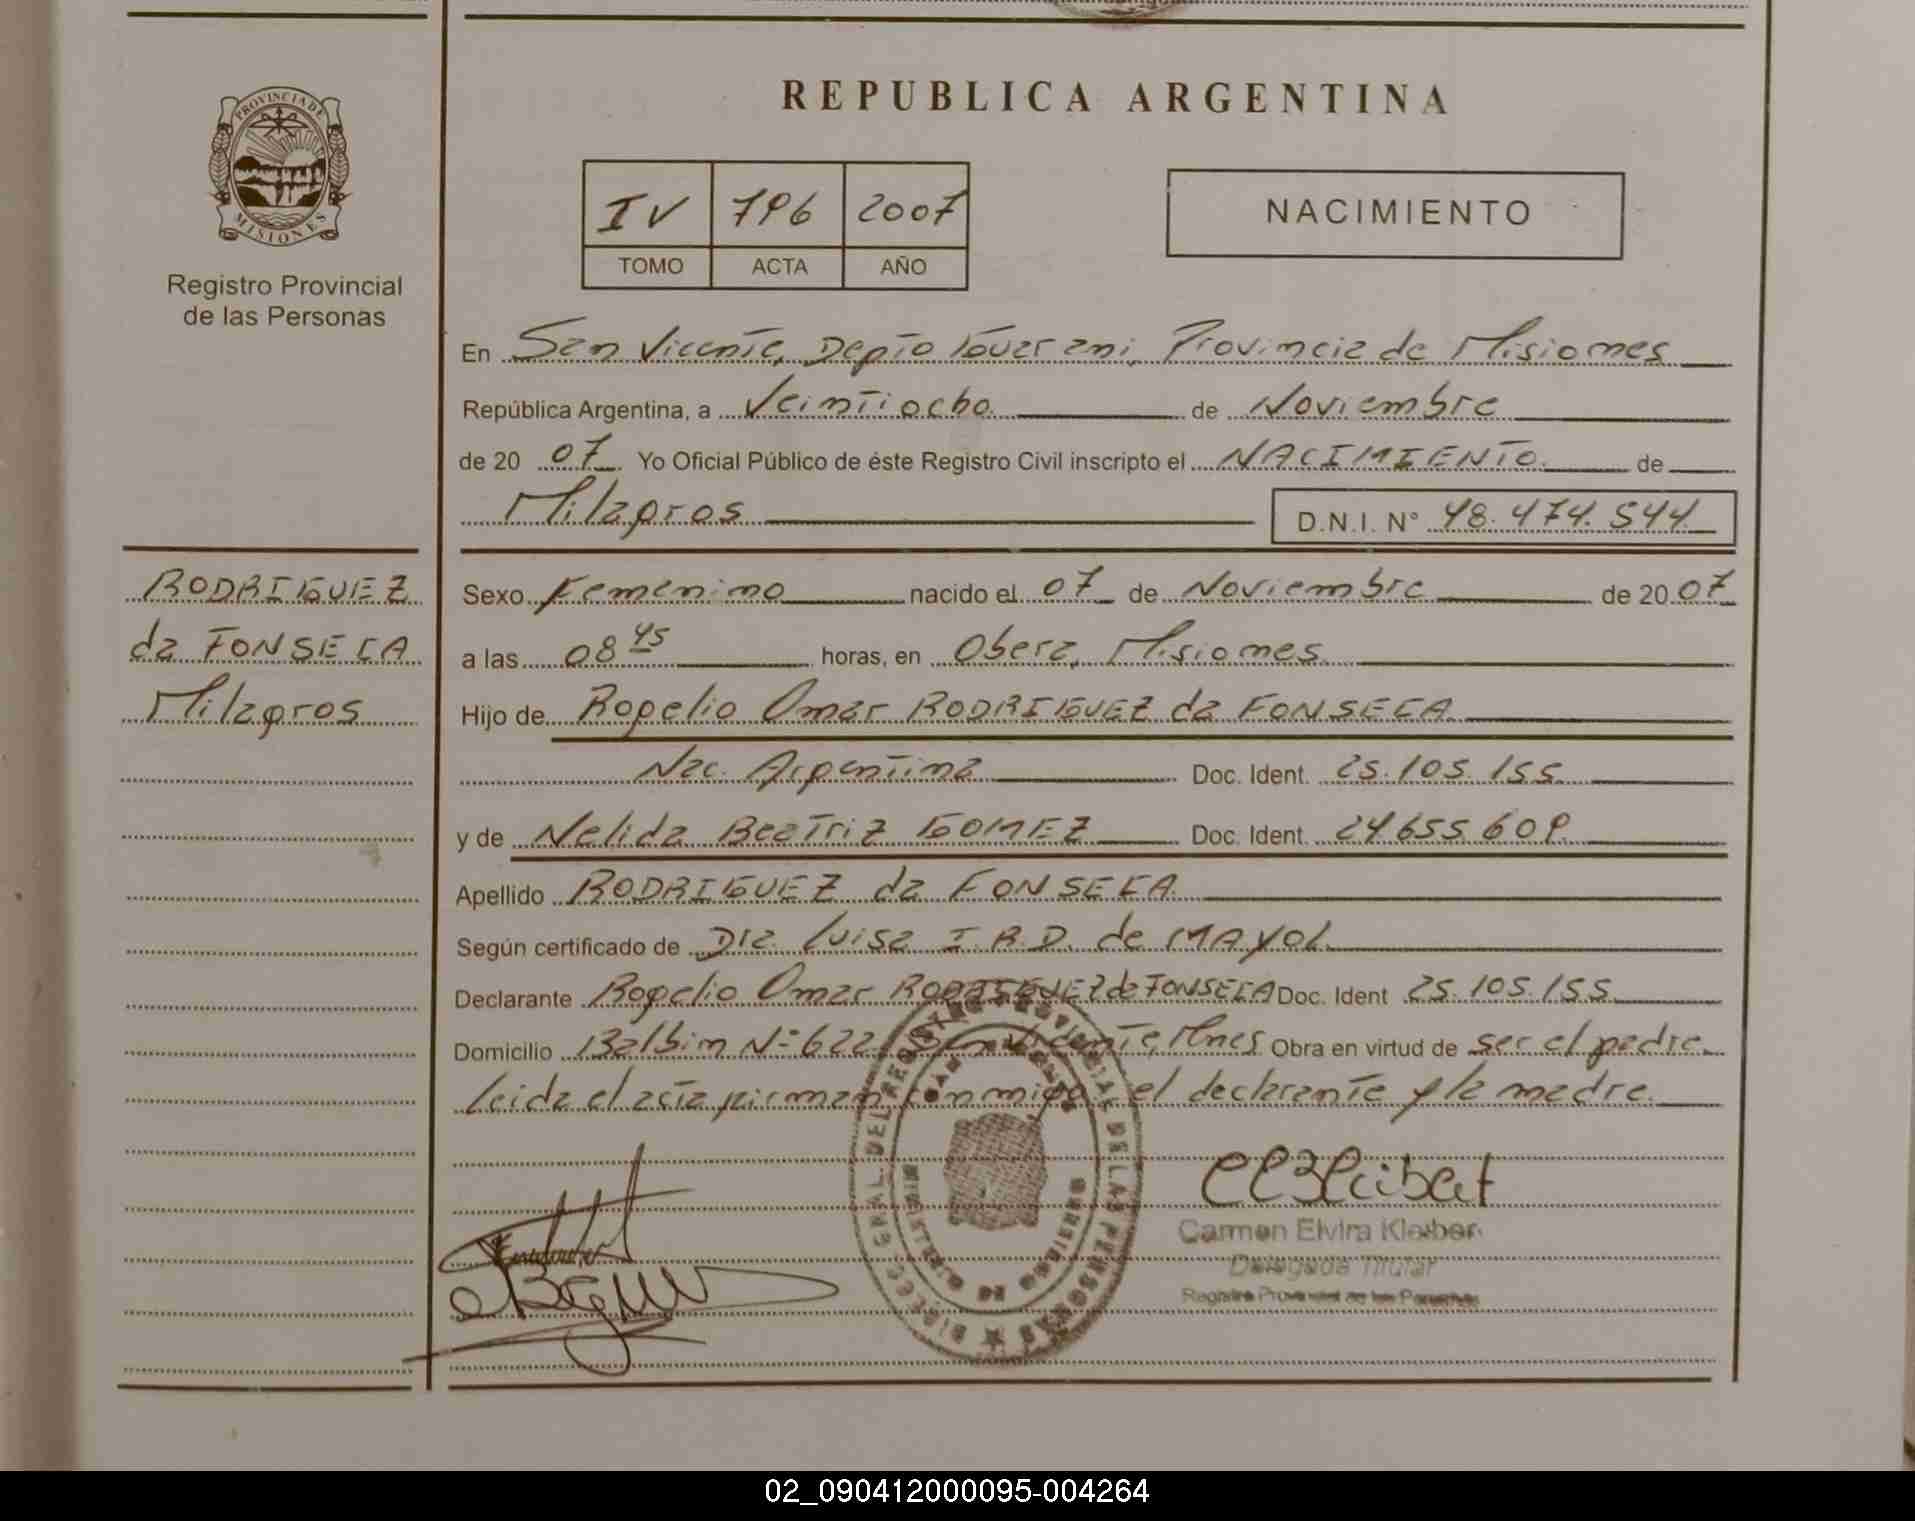 PROVINCIA DE
MISIONES
Registro Provincial
de las Personas
REPUBLICA ARGENTINA
IV 796 2007
TOMO ACTA AÑO
NACIMIENTO
En San Vicente, Depto Guarani, Provincia de Misiones
República Argentina, a Veintiocho de Noviembre
de 20 07 Yo Oficial Público de éste Registro Civil inscripto el NACIMIENTO de
Milagros D.N.I. N° 48.474.544
RODRIGUEZ
da FONSECA
Milagros
Sexo Femenino nacido el 07 de Noviembre de 20 07
a las 08 45 horas, en Obera, Misiones
Hijo de Rogelio Omar RODRIGUEZ da FONSECA
Nac. Argentina Doc. Ident. 25.105.155
y de Nelida Beatriz GOMEZ Doc. Ident. 24.655.609
Apellido RODRIGUEZ da FONSECA
Según certificado de Dra. Luisa I.R.D. de MAYOL
Declarante Rogelio Omar RODRIGUEZ da FONSECA Doc. Ident 25.105.155
Domicilio Balbin N° 622 San Vicente, Mnes Obra en virtud de ser el padre
Leida el acta firman conmigo el declarante y la madre.
Carmen Elvira Kleiber
Delegada Titular
Registro Provincial de las Personas
02_090412000095-004264